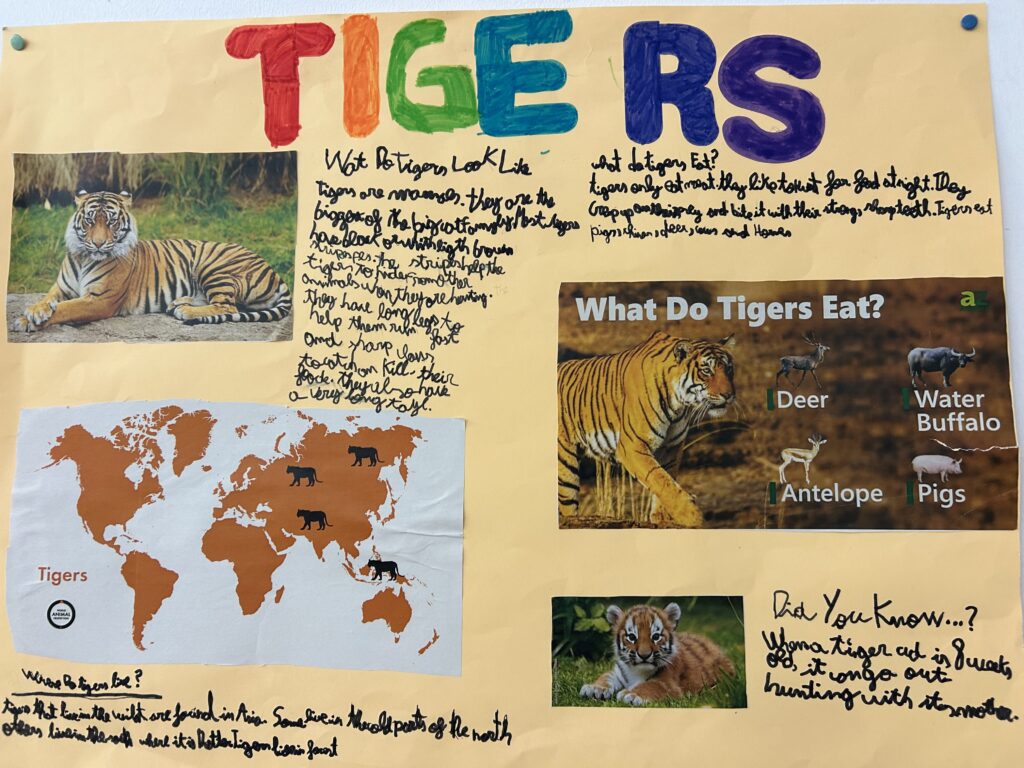 TIGERS
Wat Do Tigers Look Like
Tigers are mamals. they are the
biggest of the big cat family. Most tigers
have black or whit ligth brown
the stripes help the
tiger to hide from other
animals wen they are hunting.
they have long legs to
help them run fast
and sharp
to kill their
they also have
a very long tayl.
what do tigers Eat?
tigers only eat meat. they like to hunt for food at night. They
creep up on and bite it with their strong sharp teeth. Tigers eat
pigs, deer, and
What Do Tigers Eat?
az
Deer
Water
Buffalo
Antelope
Pigs
Tigers
WORLD
ANIMAL
PROTECTION
Where Do tigers live?
tigers that live in the are found in Asia. Some live in the cold parts of the north
others live in the where it is Hotter. Tigers live in
Did You Know...?
When a tiger cub is 8 weeks
old, it can go out
hunting with its mother.